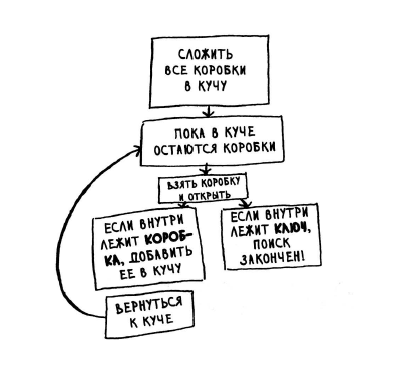 СЛОЖИТЬ
ВСЕ КОРОБКИ
В КУЧУ
ПОКА В КУЧЕ
ОСТАЮТСЯ КОРОБКИ
ВЗЯТЬ КОРОБКУ
И ОТКРЫТЬ
ЕСЛИ ВНУТРИ
ЛЕЖИТ КОРОБ-
КА, ДОБАВИТЬ
ЕЕ В КУЧУ
ЕСЛИ ВНУТРИ
ЛЕЖИТ КЛЮЧ,
ПОИСК
ЗАКОНЧЕН!
ВЕРНУТЬСЯ
К КУЧЕ